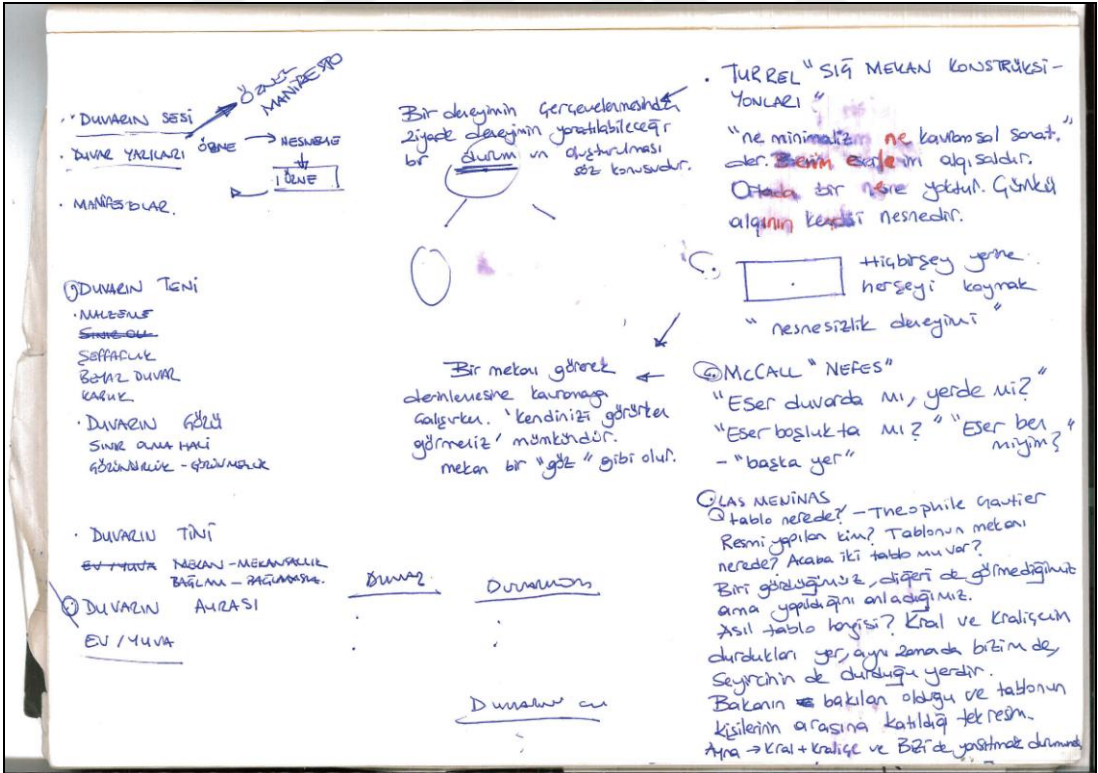 · DUVARIN SESİ
ÖZNEL
MANİFESTO
· DUVAR YAZILARI
ÖZNE → NESNELLİK
ÖZNE
· MANİFESTOLAR.
DUVARIN TENİ
· MALZEME
SINIR OLU
ŞEFFAFLIK
BEYAZ DUVAR
KABUK
· DUVARIN GÖZÜ
SINIR OLMA HALİ
GÖRÜNÜRLÜK - GÖRÜNMEZLİK
· DUVARIN TİNİ
EV / YUVA MEKAN - MEKANSALLIK
BAĞLAM - BAĞLAMSAL.
DUVARIN AURASI
EV / YUVA
Bir deneyimin çerçevelenmesinden
ziyade deneyimin yaratılabileceği
bir durum un oluşturulması
söz konusudur.
Bir mekanı görerek
derinlemesine kavramaya
çalışırken. 'kendinizi görürken
görmeniz' mümkündür.
mekan bir "göz" gibi olur.
DUVAR
DUVARIN
· TURREL "SIĞ MEKAN KONSTRÜKSİ-
YONLARI"
"ne minimalizm ne kavramsal sanat."
der. Benim eserlerimi algısaldır.
Ortada bir nesne yoktur. Çünkü
algının kendisi nesnedir.
Hiçbirşey yerine
herşeyi koymak
"nesnesizlik deneyimi"
McCALL "NEFES"
"Eser duvarda mı, yerde mi?"
"Eser boşlukta mı?" "Eser ben
miyim?"
- "başka yer"
LAS MENINAS
tablo nerede? - Theophile Gautier
Resmi yapılan kim? Tablonun mekanı
nerede? Acaba iki tablo mu var?
Biri gördüğümüz, diğeri de görmediğimiz
ama yapıldığını anladığımız.
Asıl tablo hangisi? Kral ve Kraliçenin
durdukları yer, aynı zamanda bizim de,
Seyircinin de durduğu yerdir.
Bakanın bakılan olduğu ve tablonun
kişilerinin arasına katıldığı tek resim.
Ayna → Kral + Kraliçe ve BİZİ de yansıtmak durumunda